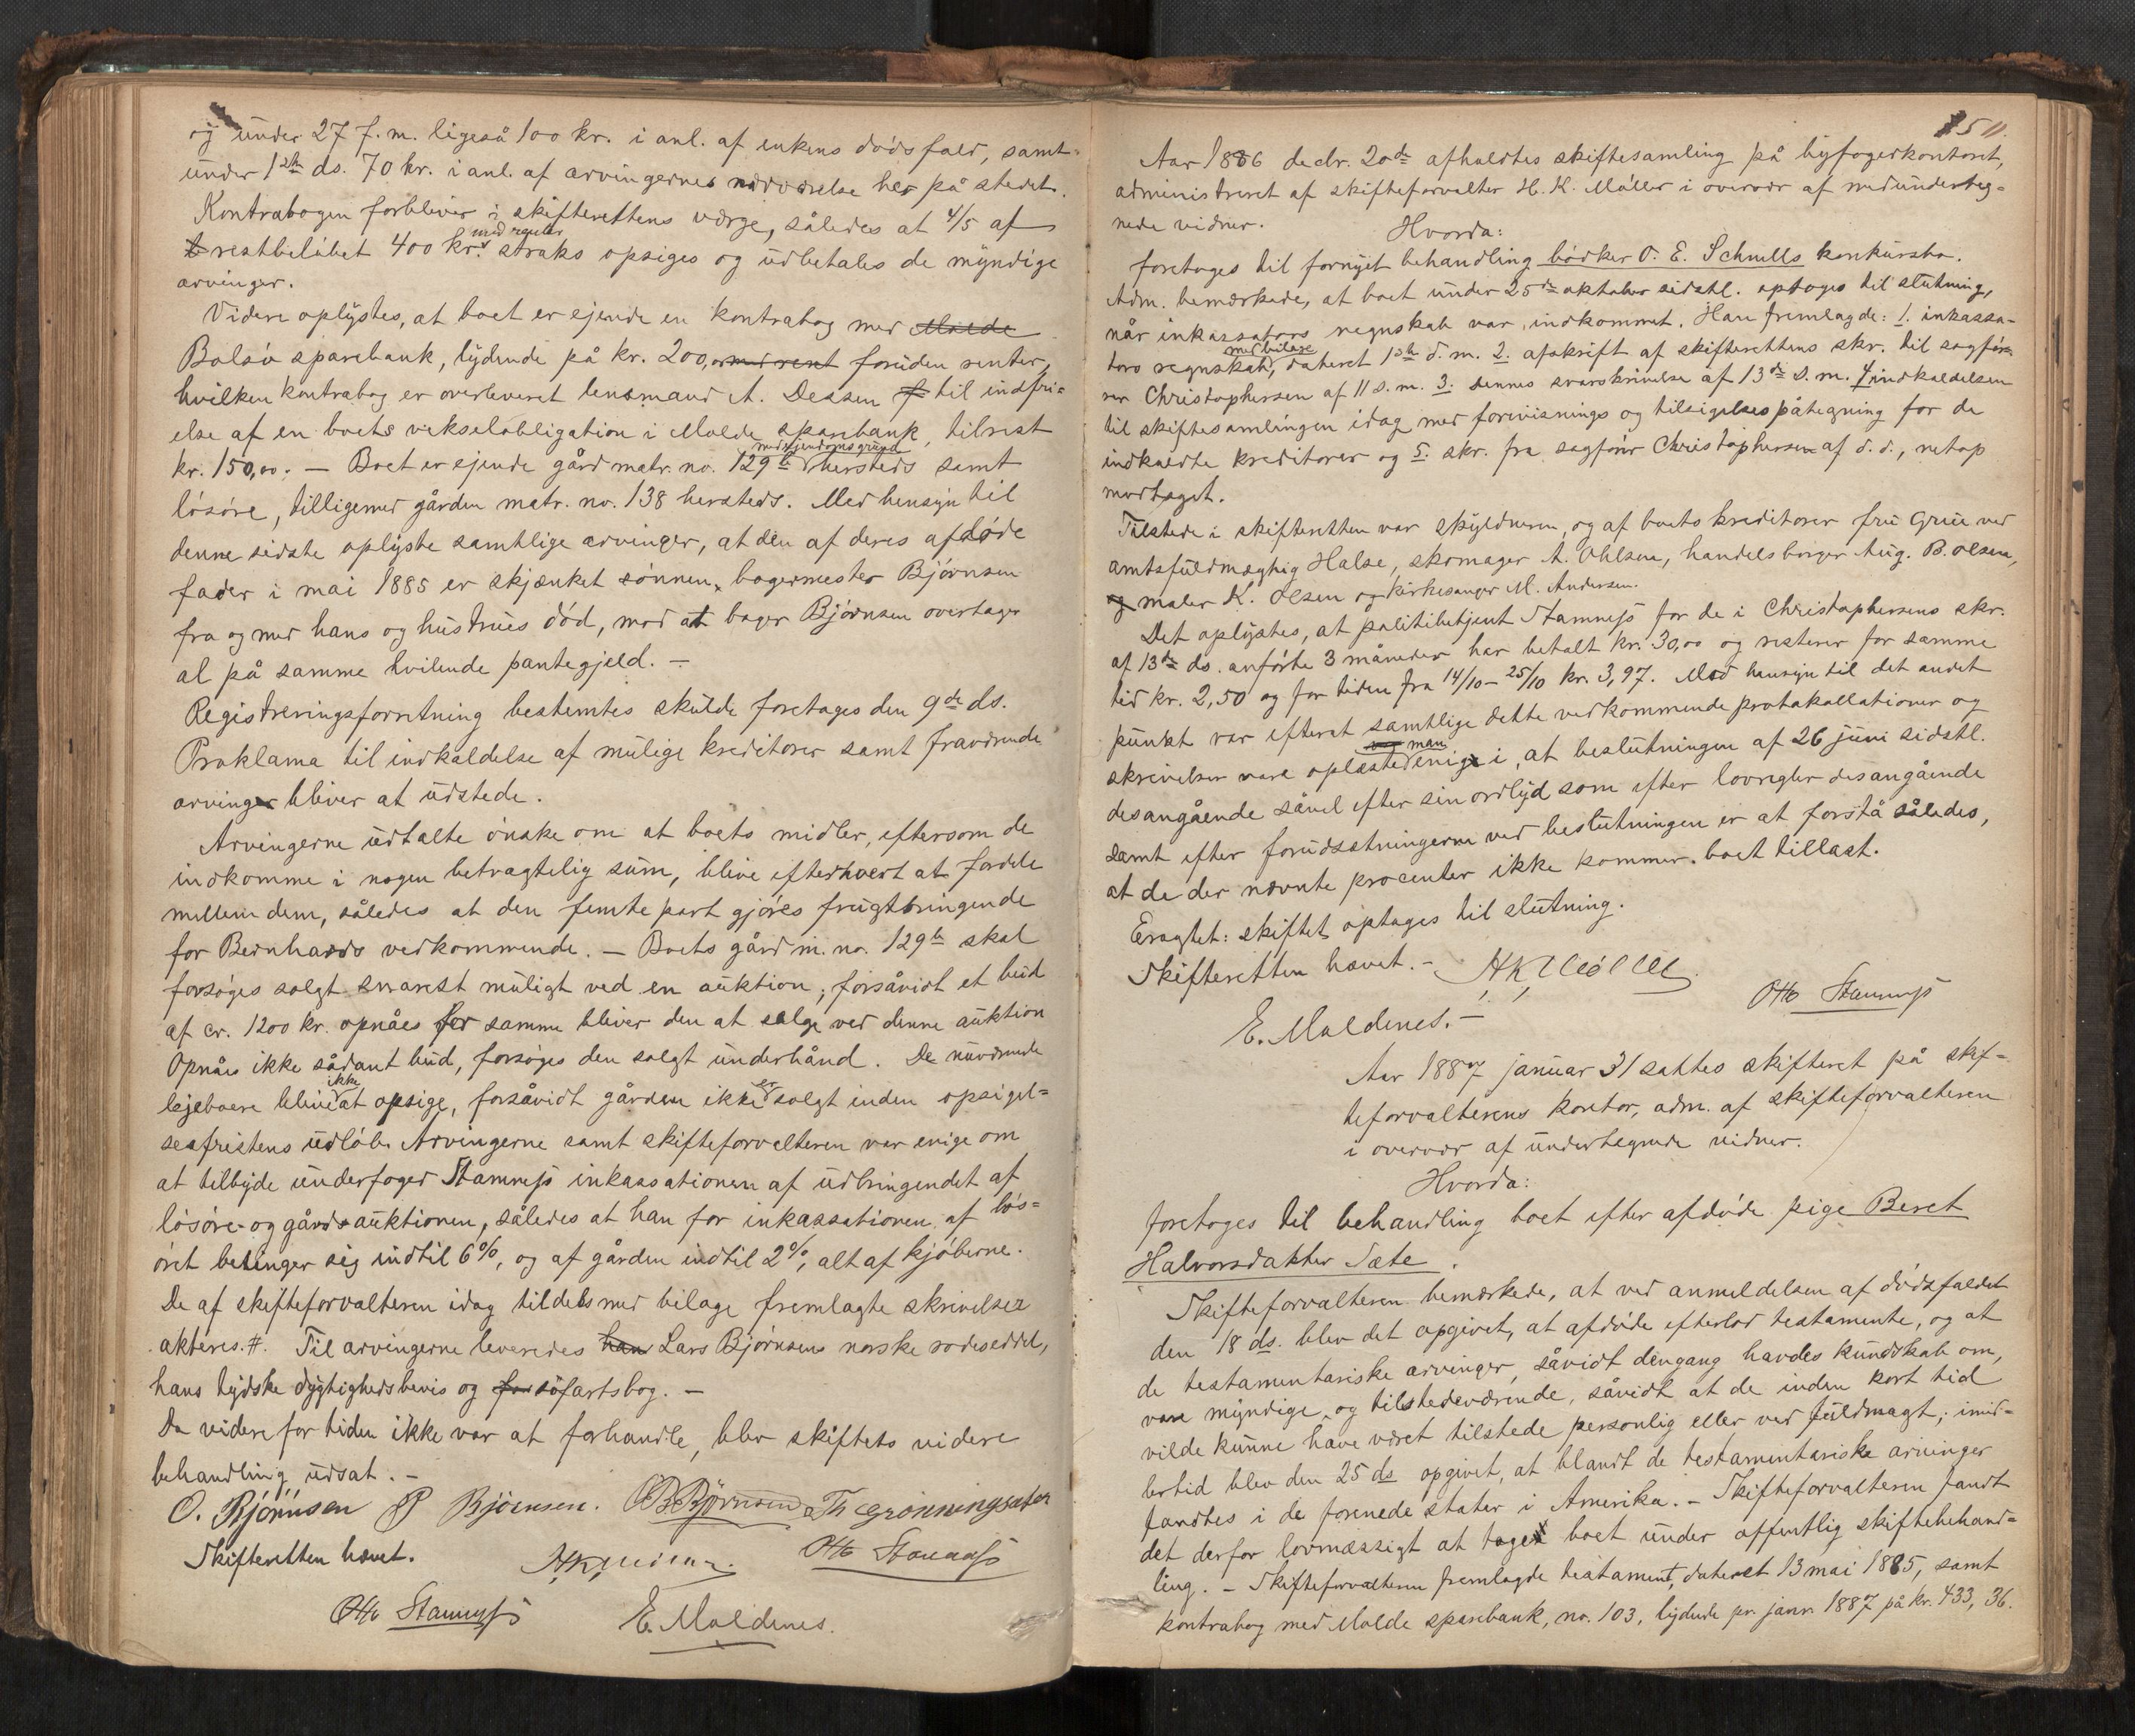 og under 27 f. m. ligeså 100 kr. i anl. af enkens dødsfald, samt
under 1ste ds. 70 kr. i anl. af arvingernes nærværelse her på stedet.
Kontrabogen forbliver i skifterettens værge, således at 4/5 af
restbeløbet 400 kr. med renter straks opsiges og udbetales de myndige
arvinger.
Videre oplystes, at boet er ejende en kontrabog med Molde
Bolsø sparebank, lydende på kr. 200,00 med rent foruden renter,
hvilken kontrabog er overleveret lensmand A. Dessen til indfri-
else af en boets vekselobligation i Molde sparebank, tilrest
kr. 150,00. — Boet er ejende gård matr. no. 129b med ejendomsgrund hersteds samt
løsøre, tilligemed gården matr. no. 138 hersteds. Med hensyn til
denne sidste oplyste samtlige arvinger, at den af deres afdøde
fader i mai 1885 er skjænket sønnen, bagermester Bjørnsen
fra og med hans og hustrues død, mod at bager Bjørnsen overtager
al på samme hvilende pantegjeld. —
Registreringsforretning bestemtes skulde foretages den 9de ds.
Proklama til indkaldelse af mulige kreditorer samt fraværende
arvinger bliver at udstede.
Arvingerne udtalte ønske om at boets midler, eftersom de
indkomme i nogen betragtelig sum, blive efterhvert at fordele
mellem dem, således at den femte part gjøres frugtbringende
for Bernhards vedkommende. — Boets gård m. no. 129b skal
forsøges solgt snarest muligt ved en auktion; forsåvidt et bud
af cr. 1200 kr. opnåes for samme bliver den at selge ved denne auktion
Opnåes ikke sådant bud, forsøges den solgt underhånd. De nuværende
lejeboere blive ikke at opsige, forsåvidt gården ikke er solgt inden opsigel-
sesfristens udløb. Arvingerne samt skifteforvalteren var enige om
at tilbyde underfoged Stamnes inkassationen af udbringendet af
løsøre- og gårdsauktionen, således at han for inkassationen af løs-
øret betinger sig indtil 6%, og af gården indtil 2%, alt af kjøberne.
De af skifteforvalteren idag tildels med bilage fremlagte skrivelser
akteres. #. Til arvingerne leveredes han Lars Bjørnsens norske rodeseddel,
hans tydske dygtighedsbevis og søfartsbog. —
Da videre for tiden ikke var at forhandle, blev skiftets videre
behandling udsat. —
O. Bjørnsen P Bjørnsen. O B Bjørnsen Th Grønningsæter
Skifteretten hævet. HKMøller. Otto Stamnes
Otto Stamnes E. Moldenes.
150.
Aar 1886 decbr. 20de afholdtes skiftesamling på byfogedkontoret,
administreret af skifteforvalter H. K. Møller i overvær af medunderteg-
nede vidner.
Hvorda:
foretoges til fornyet behandling bødker O. E. Schnells konkursbo.
Adm. bemærkede, at boet under 25de oktober sidstl. optoges til slutning,
når inkassators regnskab var indkommet. Han fremlagde: 1. inkassa-
tors regnskab, med bilage dateret 1ste d. m. 2. afskrift af skifterettens skr. til sagfø-
rer Christophersen af 11 d. m. 3. dennes svarskrivelse af 13de d. m. 4 indkaldelsen
til skiftesamlingen idag med forevisnings og tilsigelsespåtegning for de
indkaldte kreditorer og 5. skr. fra sagfører Christophersen af d. d., netop
modtaget.
Tilstede i skifteretten var skyldneren, og af boets kreditorer fru Grue ved
amtsfuldmægtig Halse, skomager A. Ohlsen, handelsborger Aug. B. Olsen,
og maler K. Olsen og kirkesanger M. Andersen.
Det oplystes, at politibetjent Stamnes for de i Christophersens skr.
af 13de ds. anførte 3 måneder har betalt kr. 30,00 og resterer for samme
tid kr. 2,50 og for tiden fra 14/10 - 25/10 kr. 3,97. Med hensyn til det andet
punkt var efterat samtlige dette vedkommende protokollationer og
skrivelser vare oplæste man enige i, at beslutningen af 26 juni sidstl.
desangående såvel efter sin ordlyd som efter lovregler desangående
samt efter forudsætningerne ved beslutningen er at forstå således,
at de der nævnte procenter ikke kommer boet tillast.
Eragtet: skiftet optages til slutning.
Skifteretten hævet. - HKMøller.
E. Moldenes. — Otto Stamnes
Aar 1887 januar 31 sattes skifteret på skif-
teforvalterens kontor, adm. af skifteforvalteren
i overvær af undertegnede vidner.
Hvorda:
foretoges til behandling boet efter afdøde pige Beret
Halvorsdatter Sæte.
Skifteforvalteren bemærkede, at ved anmeldelsen af dødsfaldet
den 18 ds. blev det opgivet, at afdøde efterlod testamente, og at
de testamentariske arvinger, såvidt dengang havdes kundskab om,
vare myndige og tilstedeværende, såvidt at de inden kort tid
vilde kunne have været tilstede personlig eller ved fuldmagt; imid-
lertid blev den 25 ds opgivet, at blandt de testamentariske arvinger
fandtes i de forenede stater i Amerika. — Skifteforvalteren fandt
det derfor lovmæssigt at tage boet under offentlig skiftebehand-
ling. — Skifteforvalteren fremlagde testament, dateret 13 mai 1885, samt
kontrabog med Molde sparebank, no. 103, lydende pr. janr. 1887 på kr. 433,36.